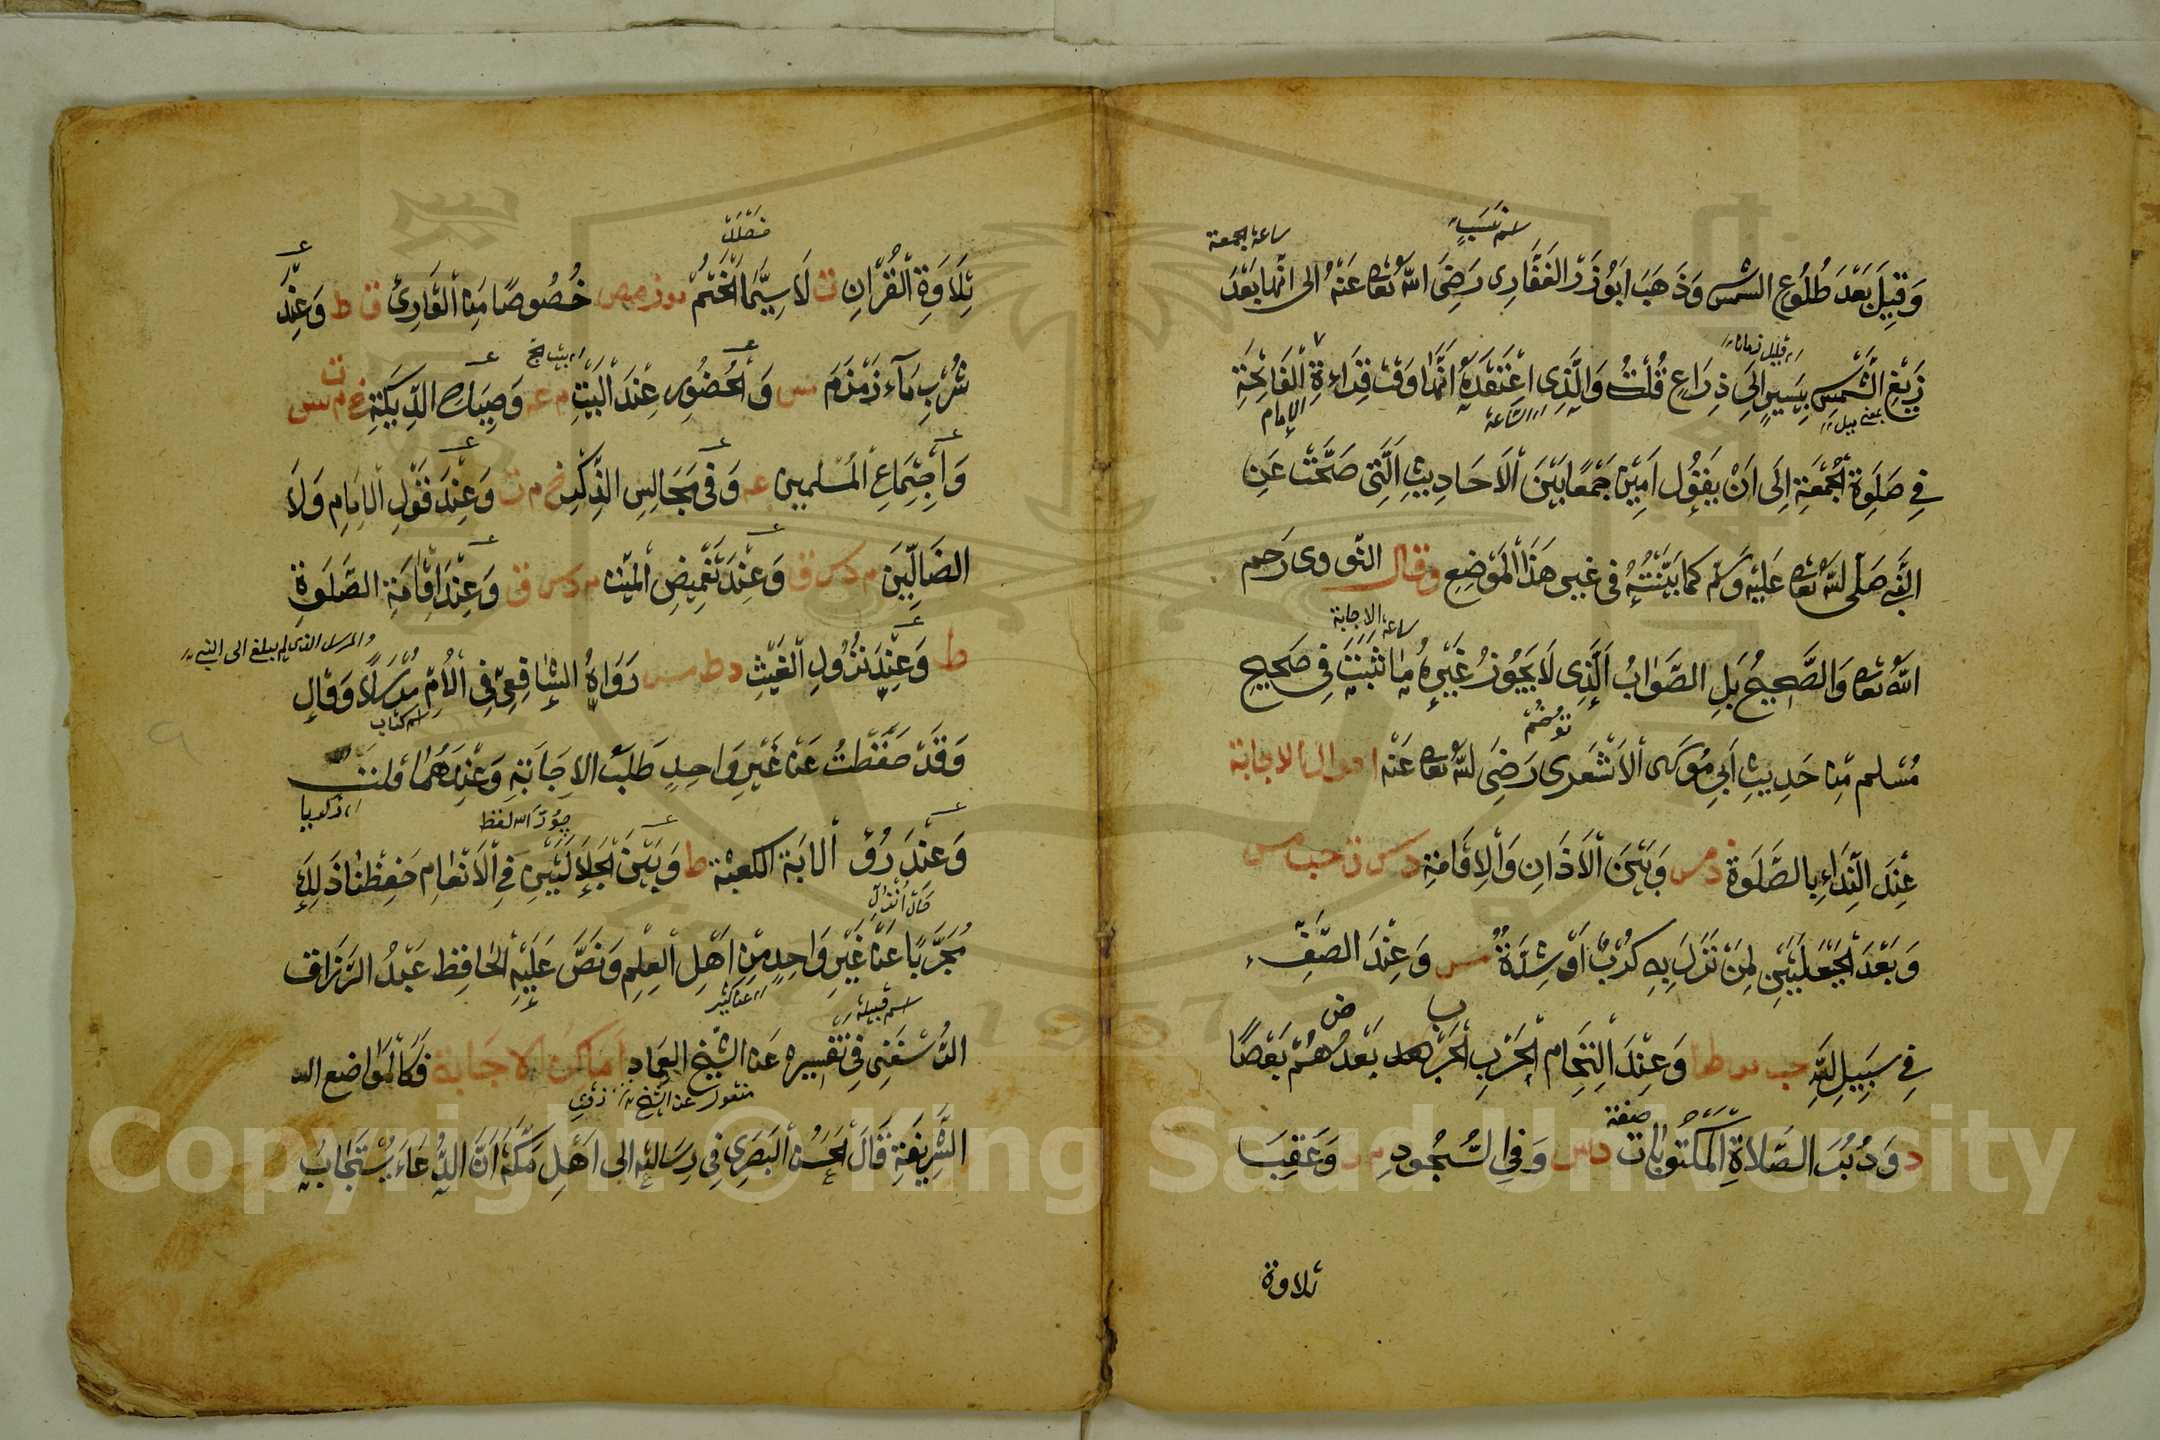 ساعة الجمعة
وَقِيلَ بَعْدَ طُلُوعِ الشمس وَذَهَبَ اَبُو ذَرٍّ الغَفَّارِى رَضِىَ اللّٰهُ تعالى عَنْهُ الى انّها بَعْدَ
زَيْغِ الشَّمْسِ بِيَسِيرٍ اِلَى ذِرَاعٍ قُلْتُ وَالَّذِى اعْتَقِدُهُ انَّهَا وَقْتَ قِرَاءةِ الْفَاتِحَةِ
الإمام
فِى صَلَوةِ الْجُمْعَةِ اِلَى اَنْ يَقُولَ اَمِيْنَ جَمْعًا بَيْنَ الْاَحَادِيثِ الَّتِى صَحَّتْ عَنِ
النَّبِى صَلَّى اللّٰه تعالى عَلَيْهِ وَسَلّم كما بَيَّنْتُهُ فى غَيْرِ هَذَا الْمَوْضِعِ وقال النّووى رَحِمه
ساعة الاجابة
اللّٰهُ تعالى وَالصَّحِيحُ بَلِ الصَّوَابُ اَلَّذِى لَا يَجُوْزُ غَيْرُهُ مَا ثَبَتَ فِى صَحِيحِ
مُسْلم مِنْ حَدِيثِ اَبِى مُوسَى الْاَشْعَرِى رَضِىَ اللّٰهُ تعالى عَنْهُ احوال الاجابة
عِنْدَ النِّدَاءِ بِالصَّلَوةِ د مس وَبَيْنَ الْاَذَانِ وَالْاِقَامَةِ د س ت حب مس
وَبَعْدَ الْحَيْعَلَتَيْنِ لِمَنْ نَزَلَ بِهِ كَرْبٌ اَوْ شِدَّةٌ مس وَعِنْدَ الصَّفِّ
فِى سَبِيلِ اللّٰهِ حب مو طا وَعِنْدَ الْتِحَامِ الْحَرْبِ بَعْضُهُمْ بَعْضًا
د وَدُبُرَ الصَّلاةِ الْمَكْتُوبَاتِ ت س وَفِى السُّجُودِ م د وَعَقِيبَ
تلاوة
تِلَاوَةِ الْقُرْآنِ ت لَا سِيَّمَا الْخَتْمُ خُصُوصًا مِنَ الْقَارِئ ت ط وَعِنْدَ
شُرْبِ مَآءِ زَمْزَمَ مس وَالْحُضُورِ عِنْدَ الْمَيِّتِ م عه وَصِيَاحِ الدِّيَكَةِ خ م ت س
وَاجْتِمَاعِ الْمُسْلِمِينَ عه وَفِى مَجَالِسِ الذِّكْرِ خ م ت وَعِنْدَ قَوْلِ الْاِمَامِ وَلَا
الضَالِّيْنَ م د س ق وَعِنْدَ تَغْمِيضِ الْمَيِّتِ م د س ق وَعِنْدَ اِقَامَةِ الصَّلَوةِ
والمرسل الذى لم يبلغ الى النبى
ط وَعِنْدَ نُزُولِ الْغَيْثِ د ط مس رَوَاهُ الشَّافِعِىُّ فِى الْاُمِّ مُرْسَلًا وَقَال
اسم كتاب
وَقَدْ حَفِظْتُ عَنْ غَيْرِ وَاحِدٍ طَلَبَ الاِجَابَةِ وَعِنْدَهُمَا قلت
وَعِنْدَ رُؤْيَة الكعبة ط وَبَيْنَ الْجَلَالَتَيْنِ فِى الْاَنْعَام حَفِظْنَا ذَلِكَ
مُجَرَّبًا عَنْ غَيْرِ وَاحِدٍ مِنْ اَهْلِ الْعِلْمِ وَنَصَّ عَلَيْهِ الْحَافِظ عَبْدُ الرَّزَاق
اسم قبيلة
الرَّسْعَنِى فِى تَفْسِيرِه عَنِ الشَّيْخِ العِمَادِ اماكن الاجابة فَكَالْمَوَاضِع الـ
الشَّرِيفَةِ قَالَ الْحَسَنُ الْبَصَرِى فِى رِسَالَتِهِ الى اَهْلِ مَكَّةَ اَنَّ الدُّعَاءَ يُسْتَجَابُ
Copyright © King Saud University
1957